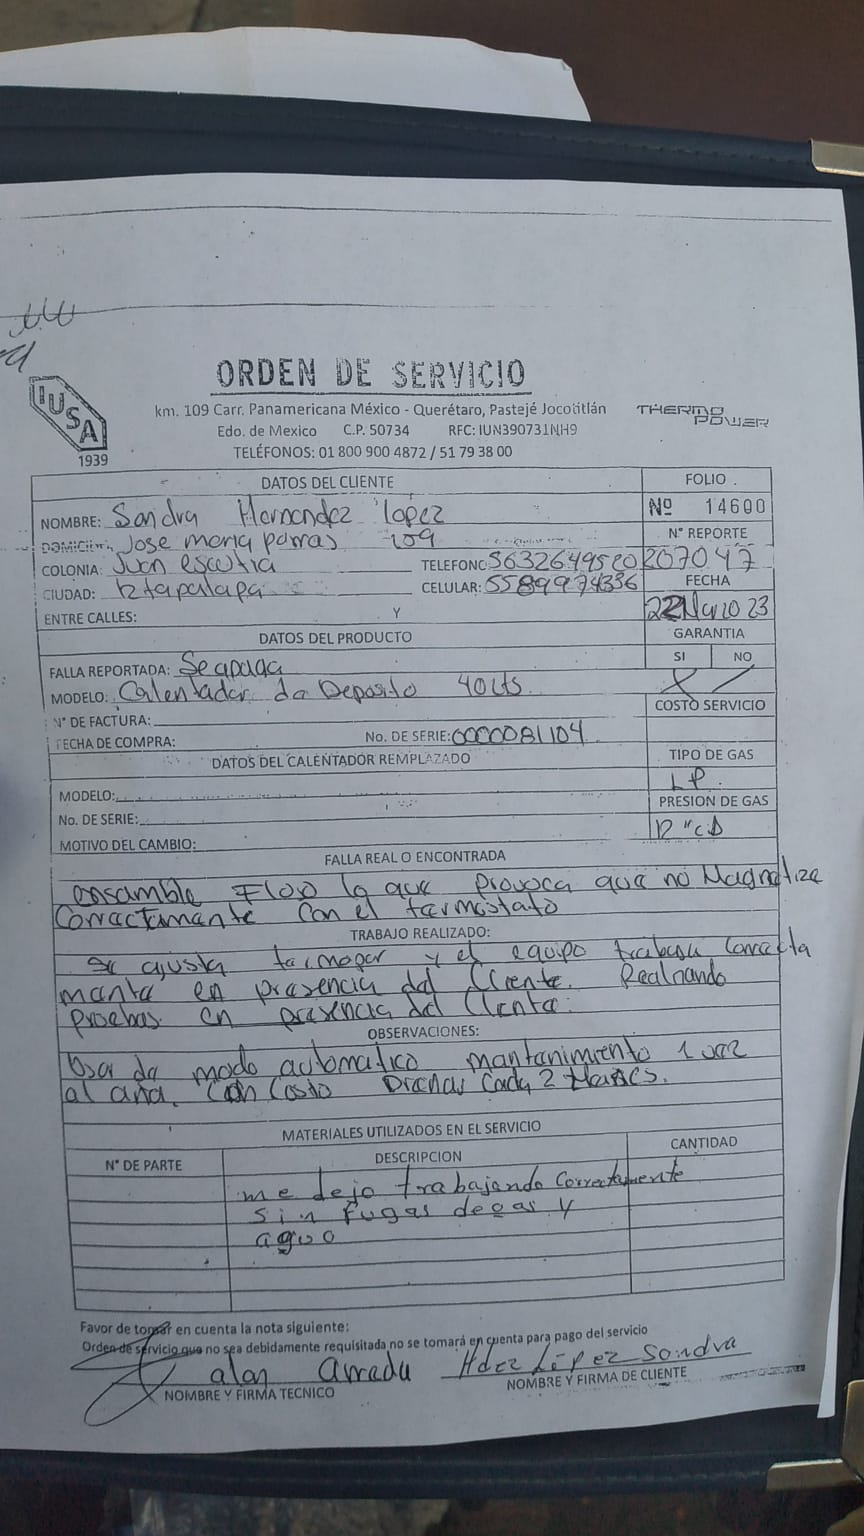 ORDEN DE SERVICIO
IUSA
1939
km. 109 Carr. Panamericana México - Querétaro, Pastejé Jocotitlán
THERMO POWER
Edo. de Mexico C.P. 50734 RFC: IUN390731NH9
TELÉFONOS: 01 800 900 4872 / 51 79 38 00
DATOS DEL CLIENTE
FOLIO
NOMBRE: Sandra Hernandez lopez
Nº 14600
DOMICILIO: Jose maria parras 109
N° REPORTE
COLONIA: Juan escutia TELEFONO: 5632649520 207047
CIUDAD: Iztapalapa CELULAR: 5589974336
FECHA
ENTRE CALLES: Y
22 Marzo 23
DATOS DEL PRODUCTO
GARANTIA
FALLA REPORTADA: Se apaga
SI NO
MODELO: Calentador de Deposito 40Lts
N° DE FACTURA:
COSTO SERVICIO
FECHA DE COMPRA: No. DE SERIE: 0000081104
DATOS DEL CALENTADOR REMPLAZADO
TIPO DE GAS
LP.
MODELO:
PRESION DE GAS
No. DE SERIE:
MOTIVO DEL CAMBIO:
FALLA REAL O ENCONTRADA
ensamble Flojo lo que Provoca que no Magnetize
Correctamente con el termostato
TRABAJO REALIZADO:
se ajusta termopar y el equipo trabaja correcta
mente en presencia del Cliente. Realizando
Pruebas en presencia del Cliente.
OBSERVACIONES:
Usar de modo automatico mantenimiento 1 vez
al año. Con Costo Drenar Cada 2 Meses.
MATERIALES UTILIZADOS EN EL SERVICIO
N° DE PARTE DESCRIPCION CANTIDAD
me dejo trabajando correctamente
sin fugas de gas y
agua
Favor de tomar en cuenta la nota siguiente:
Orden de servicio que no sea debidamente requisitada no se tomará en cuenta para pago del servicio
alan Hdez López Sandra
NOMBRE Y FIRMA TECNICO NOMBRE Y FIRMA DE CLIENTE